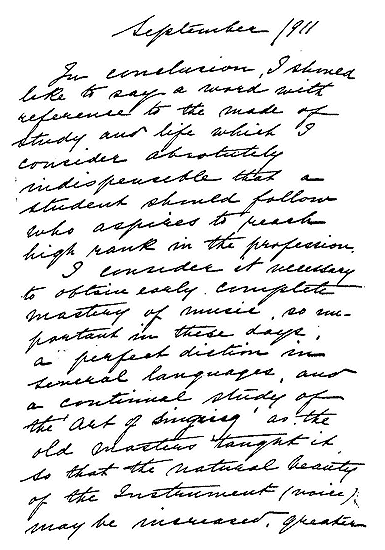 September 1911
In conclusion, I should
like to say a word with
reference to the mode of
study and life which I
consider absolutely
indispensable that a
student should follow
who aspires to reach
high rank in the profession.
I consider it necessary
to obtain early complete
mastery of music, so im-
portant in these days,
a perfect diction in
several languages, and
a continual study of
the 'Art of Singing' as the
old masters taught it,
so that the natural beauty
of the Instrument (voice)
may be increased, greater